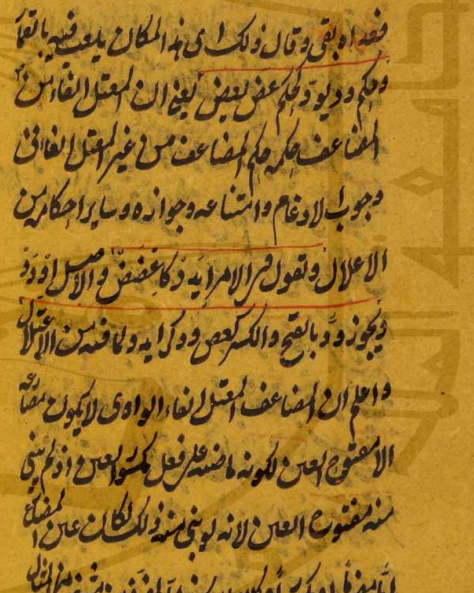 وقال ذلك اى هذا المكان يلعب فيه
وحكم ود يود كحكم عض يعض يعنى ان المعتل الفاء من
المضاعف حكمه حكم المضاعف من غير المعتل الفاء فى
وجوب الادغام وامتناعه وجوازه وساير احكامه من
الاعلال وتقول فى الامر ايدد كاغضض والاصل اودد
ويجوز ود بالفتح والكسر كعض وذكر ايدد لما فيه من الاعلال
واعلم ان المضاعف المعتل الفاء الواوى لا يكون مضارعه
الا مفتوح العين لكونه ماضيه على فعل مكسور العين اذ لم يبنى
منه مفتوح العين لانه لو بنى منه ذلك لكان عين المضارع